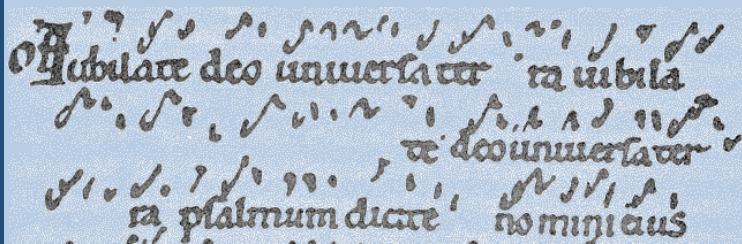 OF Iubilate deo uniuersa ter ra iubila
te deo uniuersa ter
ra psalmum dicite nomini eius